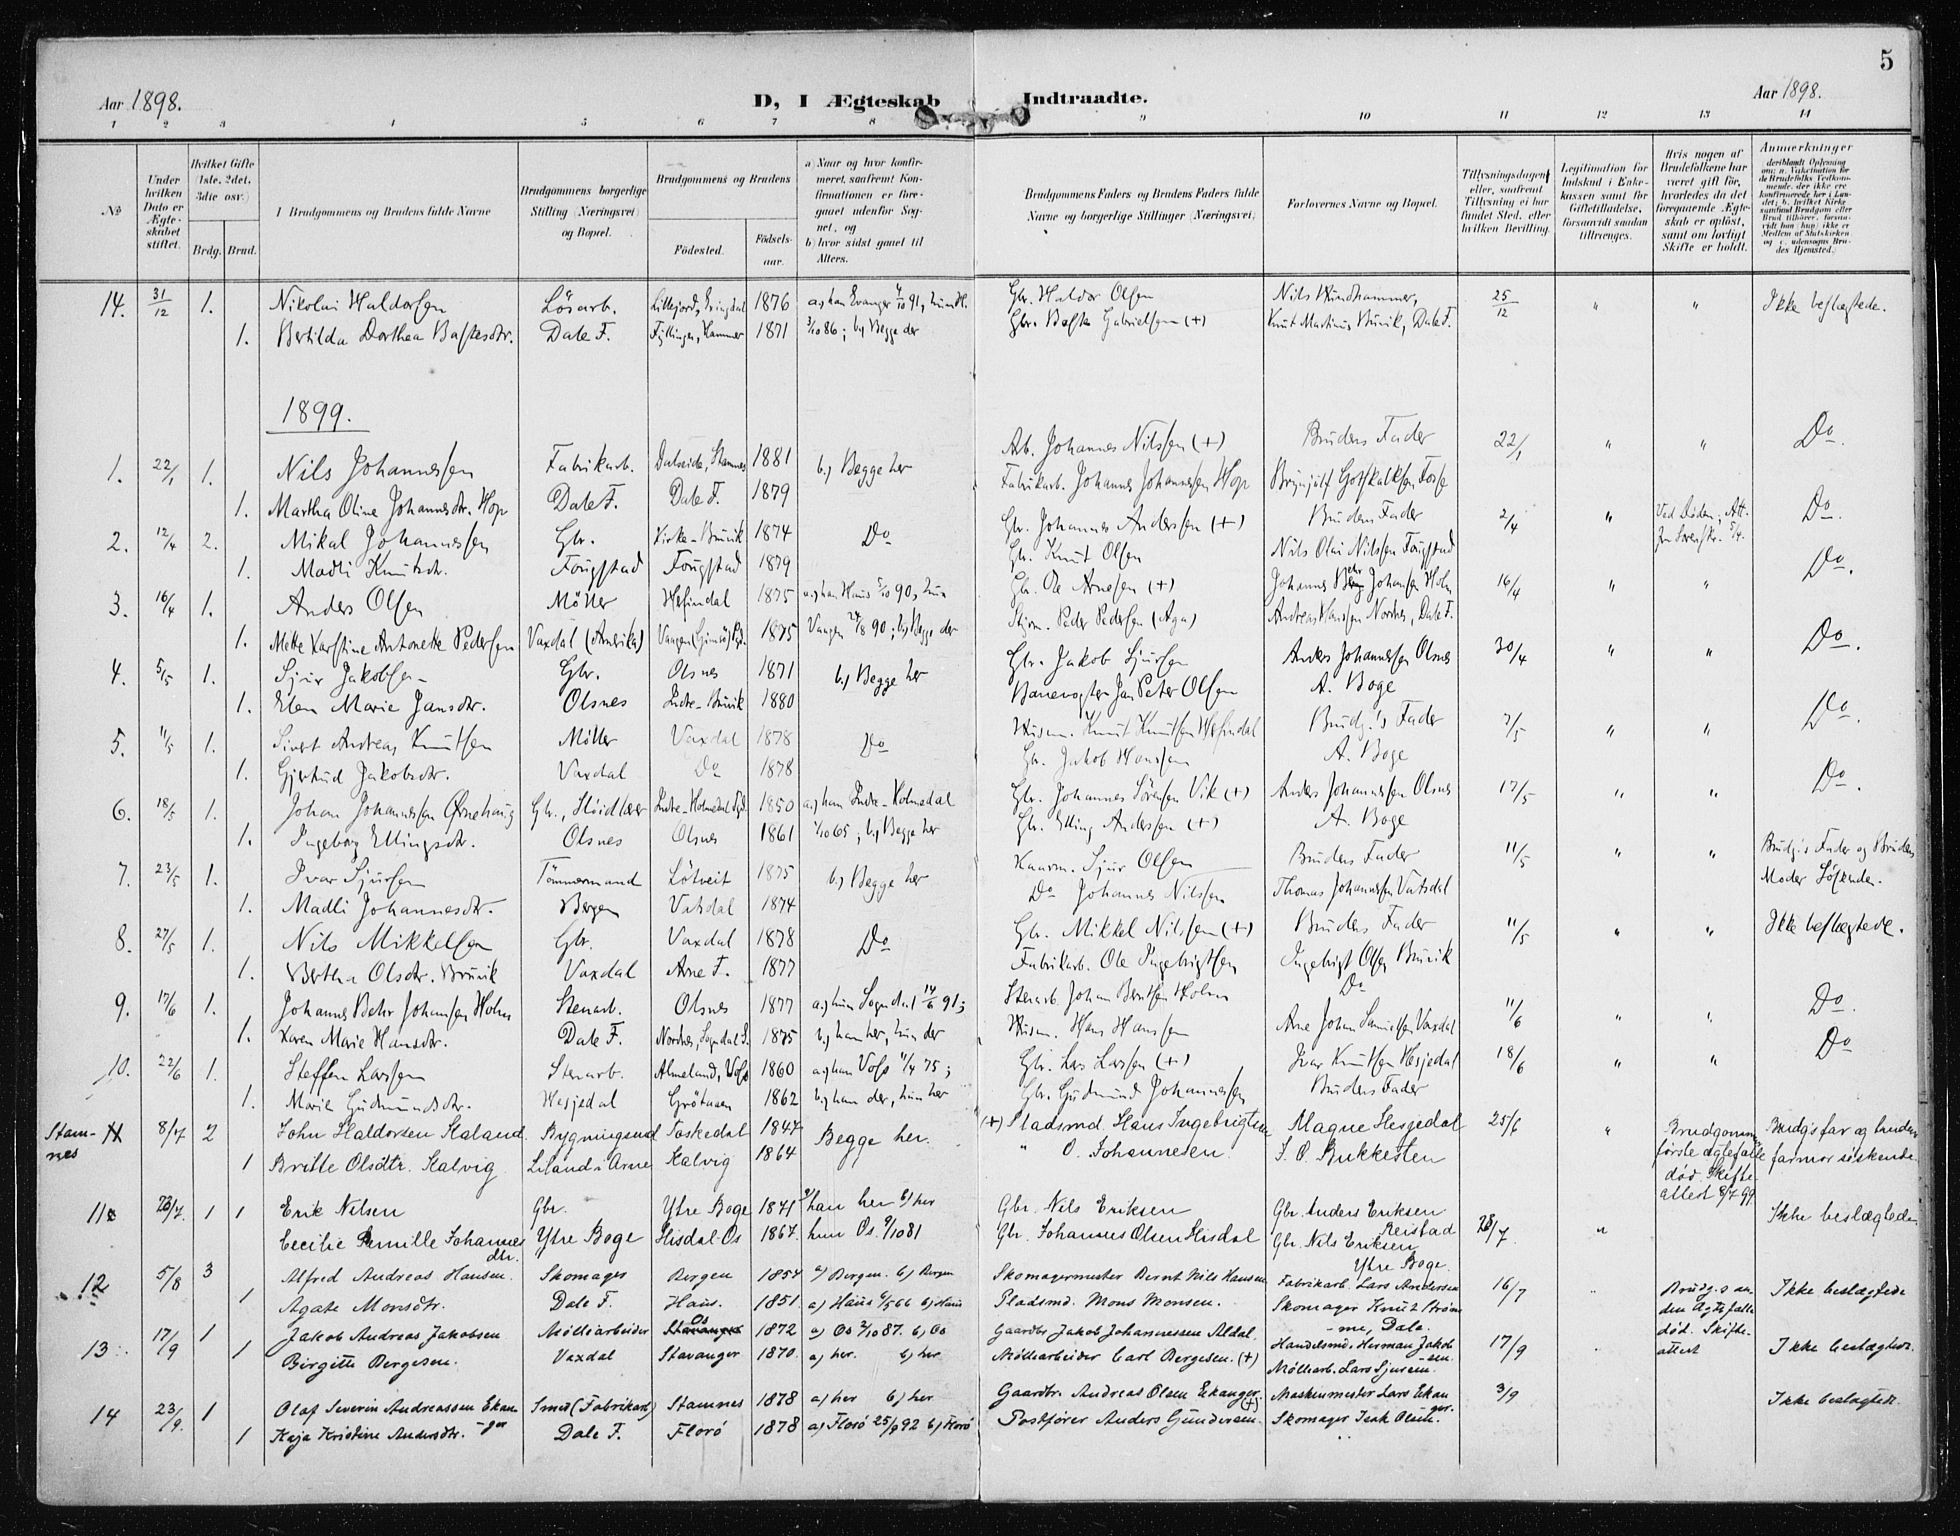 5
Aar 1898.
D, I Ægteskab Indtraadte.
Aar 1898.
1 2 3 4 5 6 7 8 9 10 11 12 13 14
No
Under hvilken Dato er Ægteskabet stiftet.
Hvilket Gifte (1ste, 2det, 3die osv.)
Brdg. Brud.
Brudgommens og Brudens fulde Navne
Brudgommens borgerlige Stilling (Næringsvei) og Bopæl.
Brudgommens og Brudens
Födested. Födselsaar.
a) Naar og hvor konfirmeret, saafremt Konfirmationen er foregaaet udenfor Sognet, og
b) hvor sidst gaaet til Alters.
Brudgommens Faders og Brudens Faders fulde Navne og borgerlige Stillinger (Næringsvei)
Forlovernes Navne og Bopæl.
Tillysningsdagen eller, saafremt Tillysning ei har fundet Sted, efter hvilken Bevilling.
Legitimation for Indskud i Enkekassen samt for Giftetilladelse, forsaavidt saadan tiltrænges.
Hvis nogen af Brudefolkene har været gift för, hvorledes da det foregaaende Ægteskab er oplöst, samt om lovligt Skifte er holdt.
Anmerkninger
14. 31/12 1. Nikolai Haldorsen Lösarb. 1876 a) han Evanger 91, Gbr. Haldor Olsen Nils 25/12 " " Ikke beslegtede.
1. Bertilda Dorthea Dale F. Fyllingen, Hammer 1871 3/10 86; b) Begge der Gbr. Gabrielsen (+) Knut Martinus Bruvik, Dale F.
1899.
1. 22/1 1. Nils Johannessen Fabrikarb. Dalseide, Stamnes 1881 b) Begge her Arb. Johannes Nilsen (+) Brudens Fader 22/1 " " Do.
1. Martha Oline Johannesdtr. Hop Dale F. Dale F. 1879 Fabrikarb. Johannes Johannessen Hop Brynjulf Gotskalksen Fosse
2. 12/4 2. Mikal Johannessen Gbr. Kirke-Bruvik 1874 Do Gbr. Johannes Andersen (+) Brudens Fader 2/4 " Ved Döden; Att. 5/4. Do.
1. Madli Knutsdtr. Fougstad Fougstad 1879 Gbr. Knut Olsen Nils Olai Nilsen Fougstad
3. 16/4 1. Anders Olsen Möller Hesjedal 1875 a) han Haus 5/10 90, hun Gbr. Ole Arnesen (+) Johannes Behr Johansen Holm 16/4 " " Do.
1. Mette Karstine Antonette Pedersen Vaxdal (Amerika) 1875 Vaagen 90; b) Begge der Stjrm. Peder Pedersen (Aga) Andreas Hansen Nordnes, Dale F.
4. 5/5 1. Sjur Jakobsen Gbr. Olsnes 1871 b) Begge her Gbr. Jakob Sjursen Anders Johannessen Olsnes 30/4 " " Do.
1. Elen Marie Jansdtr. Olsnes Indre-Bruvik 1880 Banevogter Jan Peter Olsen A. Boge
5. 11/5 1. Sivert Andreas Knutsen Möller Vaxdal 1878 Do Husm. Knut Knutsen Hesjedal Brudg.'s Fader 7/5 " " Do.
1. Gjertrud Jakobsdtr. Vaxdal Do 1878 Gbr. Jakob Hanssen A. Boge
6. 18/5 1. Johan Johannessen Ørnehaug Gbr., Indre-Holmedal 1850 a) han Indre-Holmedal Gbr. Johannes Sörensen Vik (+) Anders Johannessen Olsnes 17/5 " " Do.
1. Ingeborg Ellingsdtr. Olsnes Olsnes 1861 1/10 65; b) Begge her Gbr. Elling Andersen (+) A. Boge
7. 23/5 1. Ivar Sjursen Tömmermand Lötveit 1875 b) Begge her Kaarm. Sjur Olsen Brudens Fader 11/5 " " Brudg.'s Fader og Brudens
1. Madli Johannesdtr. Bergen Vatsdal 1874 Do Johannes Nilsen Thomas Johannessen Vatsdal Moder Söskende.
8. 27/5 1. Nils Mikkelsen Gbr. Vaxdal 1878 Do Gbr. Mikkel Nilssen (+) Brudens Fader 11/5 " " Ikke beslegtede.
1. Bertha Olsdtr. Bruvik Vaxdal Arne F. 1877 Fabrikarb. Ole Ingebrigtsen Ingebrigt Olsen Bruvik
9. 17/6 1. Johannes Behr Johansen Holm Stenarb. Olsnes 1877 a) hun Sogndal 14/6 91; Stenarb. Johan Berntsen Holm Do 11/6 " " Do.
1. Karen Marie Hansdtr. Dale F. Nordnes, Sogndal S. 1875 b) han her, hun der Husm. Hans Hanssen Arne Johan Samuelsen Vaxdal
10. 22/6 1. Steffen Larsen Stenarb. Almeland, Voss 1860 a) han Voss 11/4 75; Gbr. Lars Larsen (+) Ivar Knutsen Hesjedal 18/6 " " Do
1. Marie Gudmundsdtr. Hesjedal Grötuaen 1862 b) han der, hun her Gbr. Gudmund Johannessen Brudens Fader
Stamnes 8/7 2 John Haldorsen Kaland Bygningssnd Toskedal 1847 Begge her. (+) Pladsmd. Hans Ingebrigtsen Magne Hesjedal 25/6 " Brudgommens første ægtefælle død. Skifteattest 8/7 99 Brudgs far og bruden farmor søskende.
1 Britte Olsdtr. Kalvig Liland i Arne Kalvig 1864 " O. Johannesen. S. O. Bukkesten
11 23/7. 1 1 Erik Nilsen Gbr. Ytre Boge 1841 a) han her b) her Gbr. Nils Eriksen Gbr. Anders Eriksen Reistad 23/7. " Ikke beslægtede
Cecilie Pernille Johannesdtr. Ytre Boge Hisdal Os 1867 hun Os 9/10 81 Gbr. Johannes Olsen Hisdal Gbr. Nils Eriksen Ytre Boge.
12 5/8 3 Alfred Andreas Hansen. Skomager Bergen 1854 a) Bergen. b) Bergen Skomagermester Bernt Nils Hansen Fabrikarb. Lars Andersen 16/7 Brudg.s anden Ægtefælle død. Skifteattest Ikke beslægtede
1 Agate Monsdtr. Dale F. Haus. 1851. a) Haus 66 b) Haus Pladsmd. Mons Monsen. Skomager Knut Strømme, Dale.
13 17/9 1 Jakob Andreas Jakobsen Møllearbeider Os 1872 a) Os 2/10 87. b) Os Gaardbr Jakob Johannessen Aldal Handelsmd. Herman Jakobsen 17/9 Ikke beslægtede.
1 Birgitte Bergesen. Vaxdal Stavanger 1870. a) her. b) her Møllearbeider Carl Bergesen. (+) Møllearb. Lars Sjursen
14 23/9. 1 Olaf Severin Andreassen Ekanger Smed (Fabrikarb) Stamnes 1878 a) her b) her Gaardbr. Andreas Olsen Ekanger (+) Maskinmester Lars Ekanger. 3/9 Ikke beslægtede.
1 Kaja Kristine Andersdtr. Dale F. Florö 1878 a) Florö 25/9 92 b) Florö Postfører Anders Gundersen. Skomager Isak Olsen.